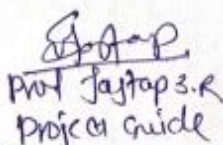 Prof Jagtap S.R
Project Guide